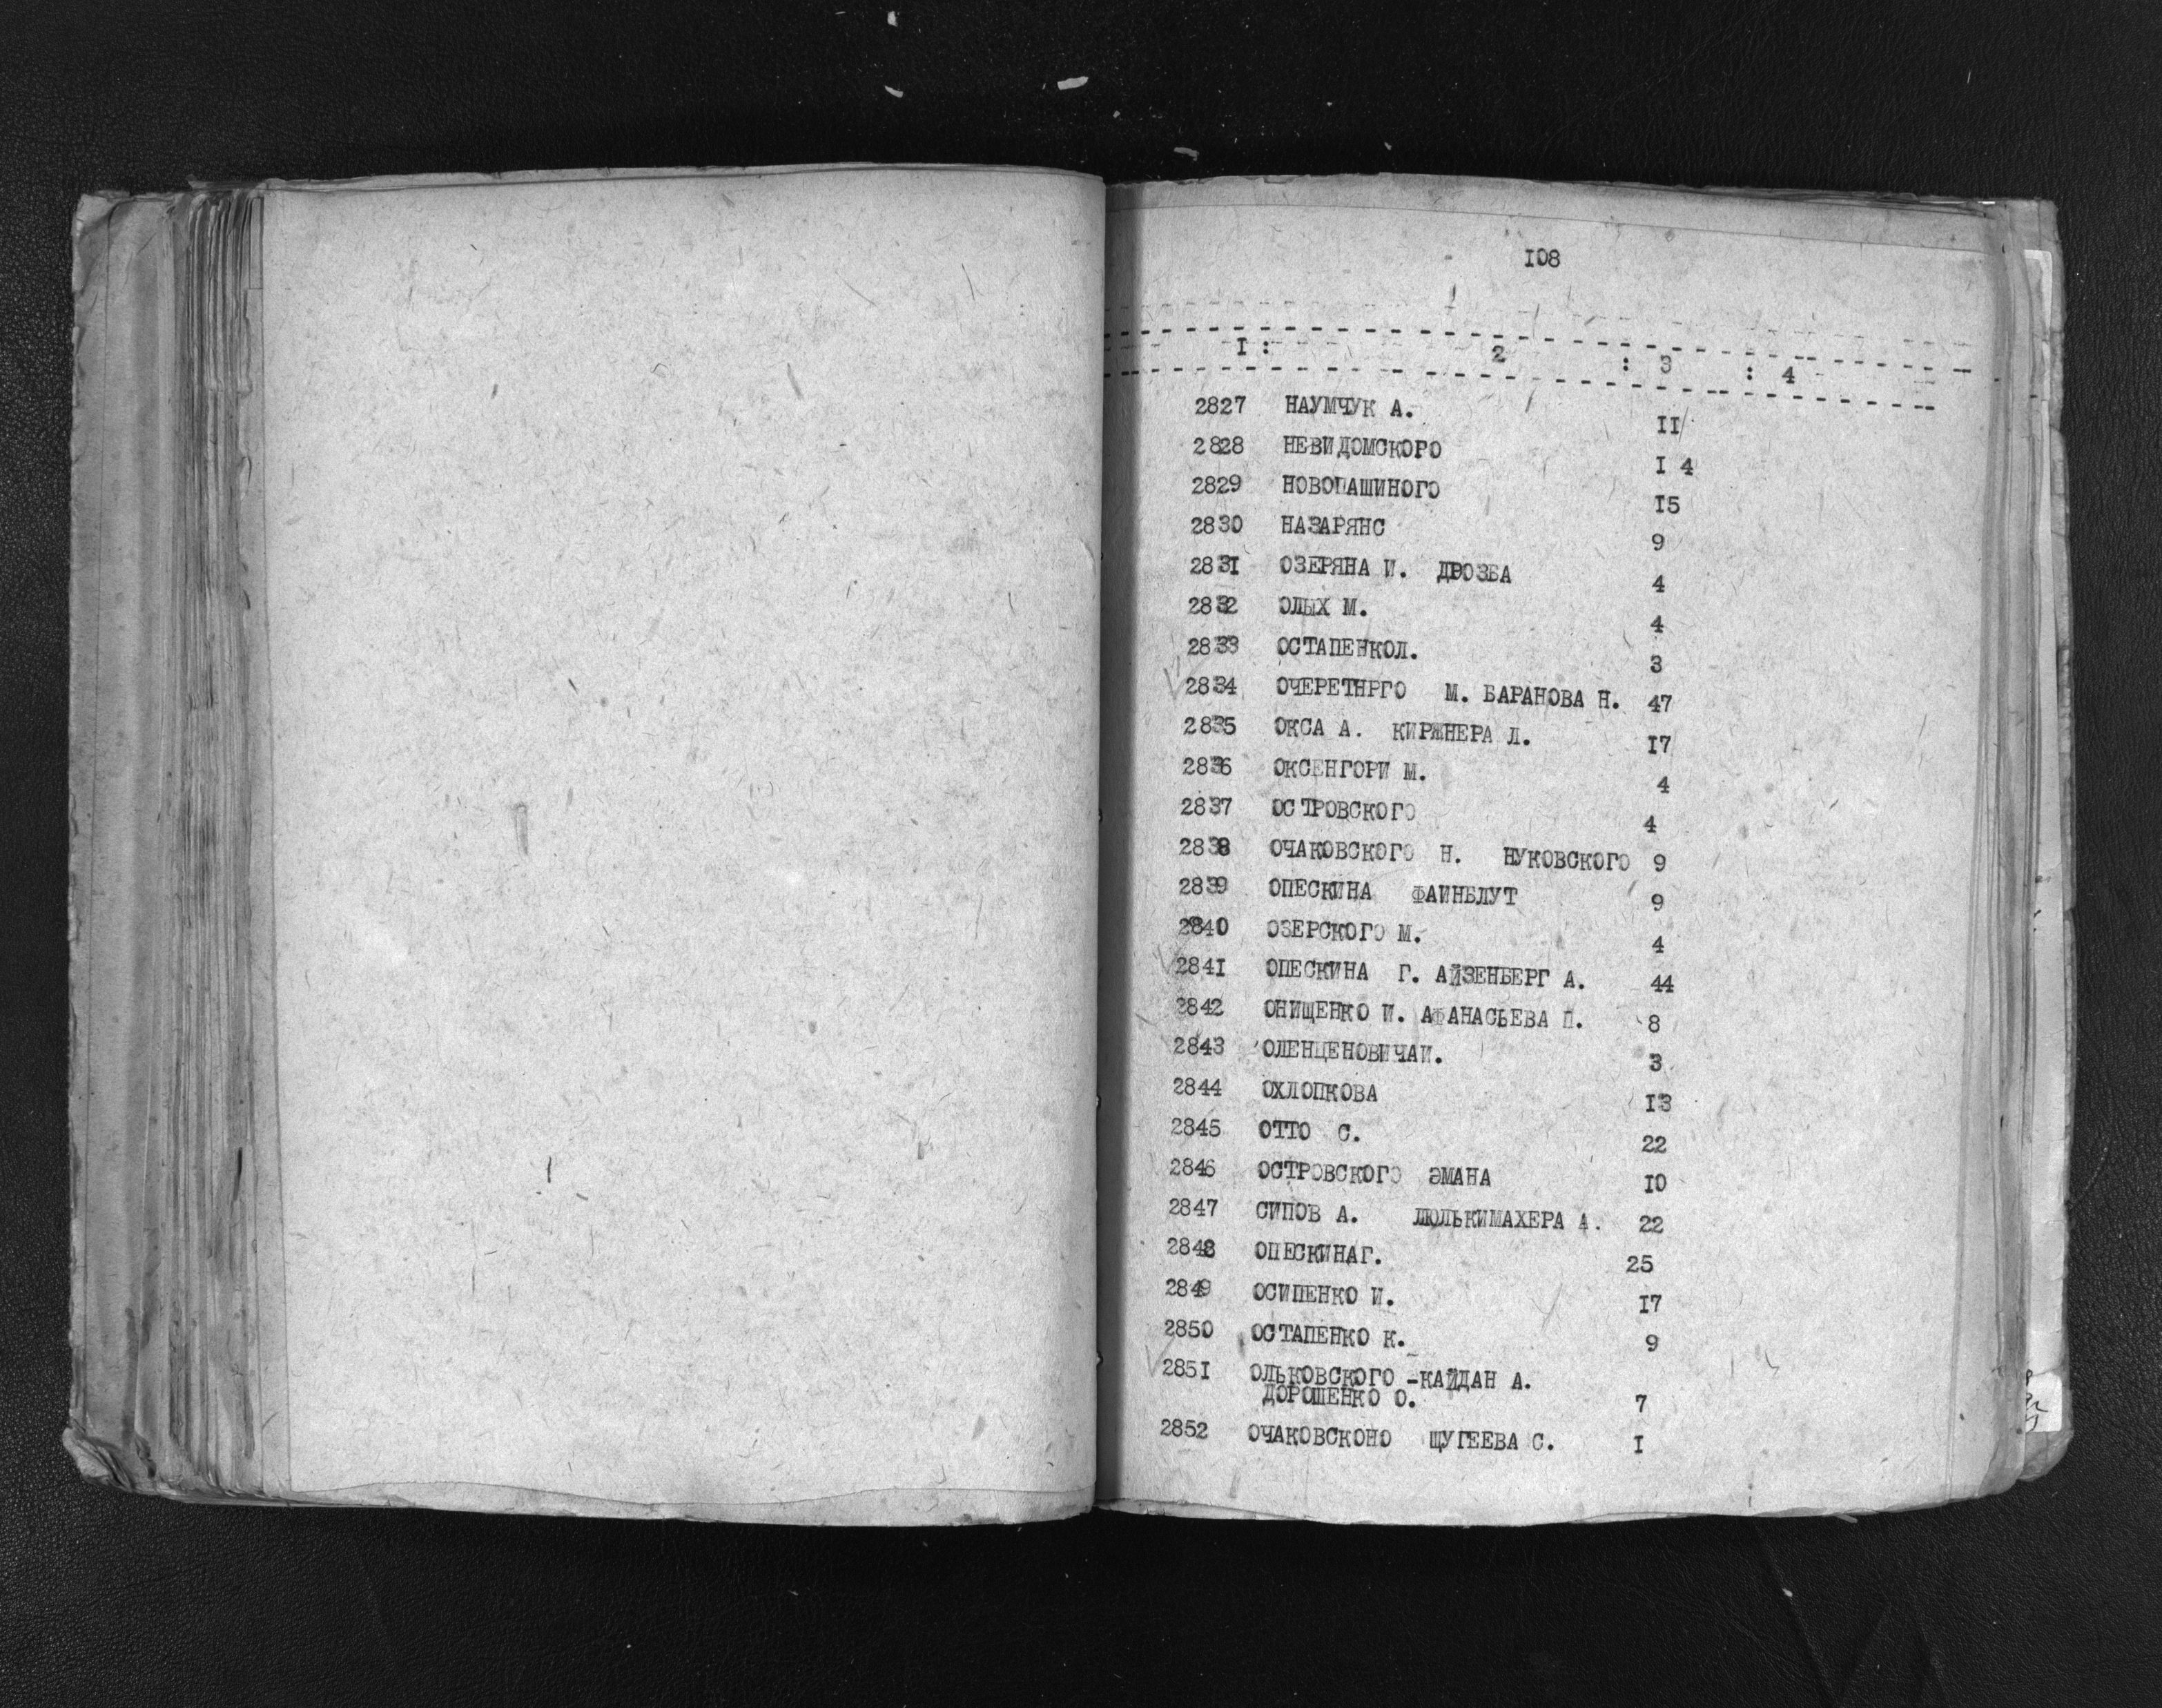 108
I : 2 : 3 : 4
2827 НАУМЧУК А. II
2828 НЕВИДОМСКОГО I 4
2829 НОВОПАШИНОГО I5
2830 НАЗАРЯНС 9
2831 ОЗЕРЯНА И. ДРОЗБА 4
2832 ОЛЫХ М. 4
2833 ОСТАПЕНКОЛ. 3
2834 ОЧЕРЕТНРГО М. БАРАНОВА Н. 47
2835 ОКСА А. КИРЖНЕРА Л. I7
2836 ОКСЕНГОРИ М. 4
2837 ОСТРОВСКОГО 4
2838 ОЧАКОВСКОГО Н. НУКОВСКОГО 9
2839 ОПЕСКИНА ФАИНБЛУТ 9
2840 ОЗЕРСКОГО М. 4
2841 ОПЕСКИНА Г. АЙЗЕНБЕРГ А. 44
2842 ОНИЩЕНКО И. АФАНАСЬЕВА П. 8
2843 ОЛЕНЦЕНОВИЧАИ. 3
2844 ОХЛОПКОВА I3
2845 ОТТО С. 22
2846 ОСТРОВСКОГО ЭМАНА I0
2847 СИПОВ А. ЛЮЛЬКИМАХЕРА А. 22
2848 ОПЕСКИНАГ. 25
2849 ОСИПЕНКО И. I7
2850 ОСТАПЕНКО К. 9
2851 ОЛЬКОВСКОГО -КАЙДАН А.
ДОРОШЕНКО О. 7
2852 ОЧАКОВСКОНО ЩУГЕЕВА С. I